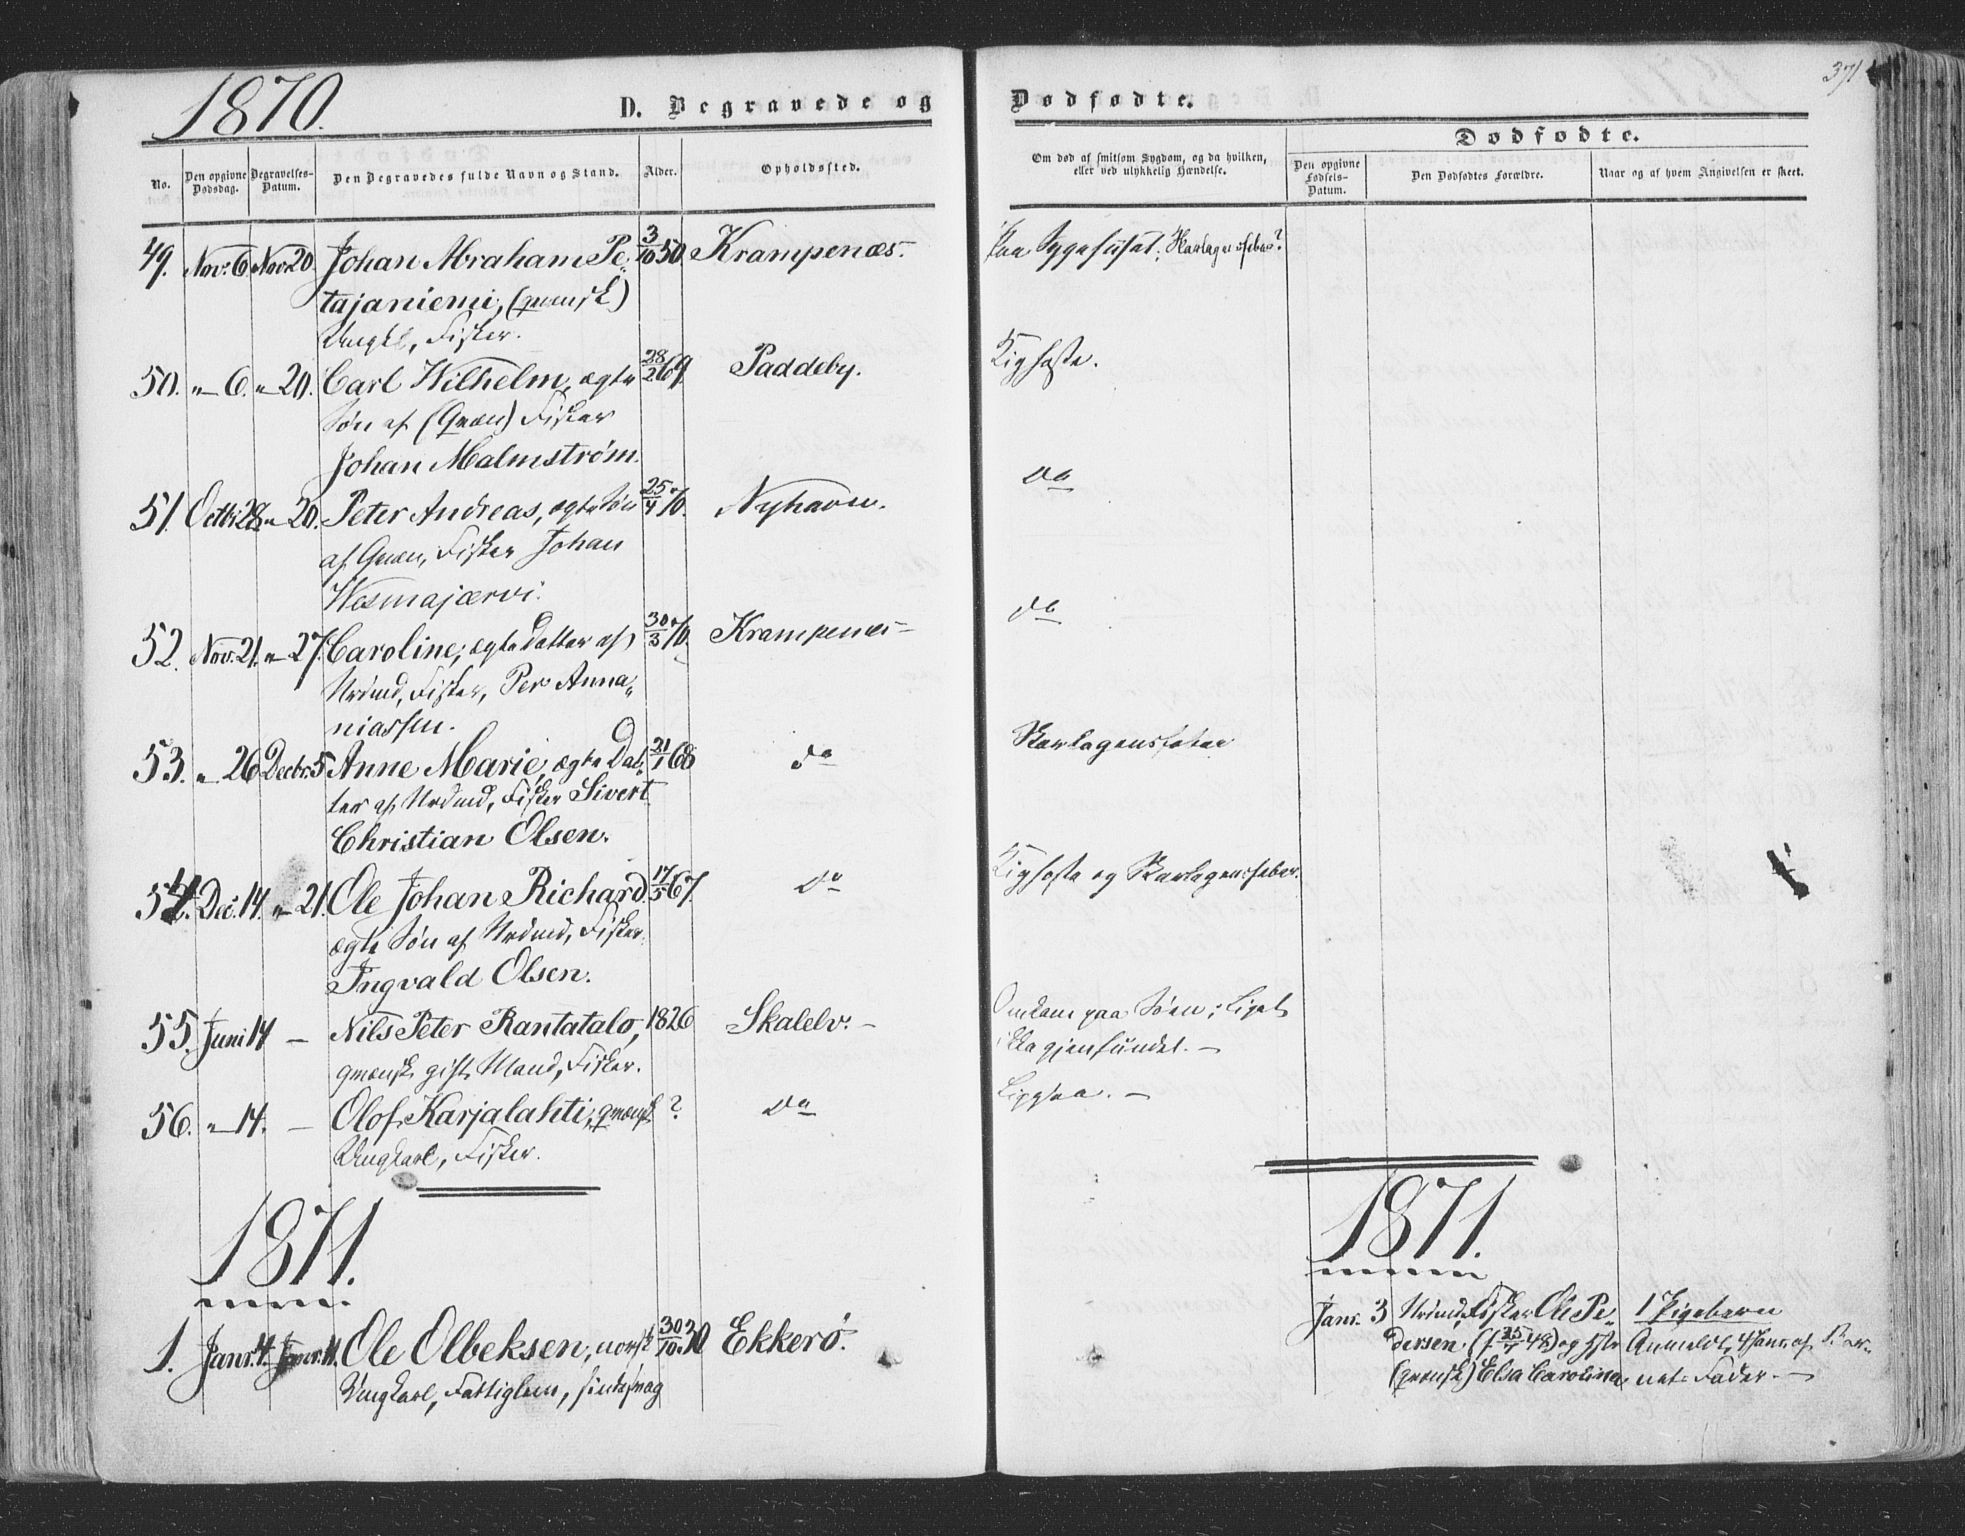 1870.
D. Begravede og
Dødfødte.
371
No.
Den opgivne Dødsdag.
Begravelses-Datum.
Den Begravedes fulde Navn og Stand.
Alder.
Opholdssted.
Om død af smitsom Sygdom, og da hvilken, eller ved ulykkelig Hændelse.
Dødfødte.
Den opgivne Fødsels-Datum.
Den Dødfødtes Forældre.
Naar og af hvem Angivelsen er skeet.
49. Nov. 6 Nov. 20 Johan Abraham Pe- 3/10 50. Krampenæs. Paa Sygehuset; Skarlagensfeber?
tajaniemi, (qvænsk)
Ungkl, Fisker.
50. " 6. " 20. Carl Wilhelm, ægte 28/2 69. Paddeby. Kighoste.
Søn af (Qvæn) Fisker
Johan Malmstrøm.
51. Octbr 28. " 20. Peter Andreas, ægte Søn 25/4 70. Nyhavn. do
af Qvæn, Fisker Johan
Wesmajærvi.
52. Nov. 21. " 27. Caroline, ægte Datter af 30/3 70. Krampenæs- do
Nrdmd, Fisker, Per Anna-
niassen.
53. " 26 Decbr. 5 Anne Marie, ægte Dat- 21/1 68 do Skarlagensfeber
ter af Nrdmd, Fisker Sivert
Christian Olsen.
54. Dec. 14. " 21. Ole Johan Richard. 17/5 67. do Kighoste og Skarlagensfeber.
ægte Søn af Nrdmd, Fisker
Ingvald Olsen.
55. Juni 14 — Nils Peter Rantatalo, 1826 Skalelv. — Omkom paa Søen; Liget
qvænsk gift Mand, Fisker. ikke gjenfundet. —
56. " 14. — Olof Karjalahti, qvænsk ? do Ligesaa. —
Ungkarl, Fisker.
1871.
1871.
1. Janr. 4. Janr. 11. Ole Olbeksen, norsk 30/10 30 Ekkerø.
Ungkarl, Fattiglem, sindssvag
Janr. 3 Nrdmd, Fisker Ole Pe- 1 Pigebarn
dersen (f. 25/7 48) og Hstr Anmeldt 4 Janr. af Bar-
(qvænsk) Elsa Carolina. nets Fader. —